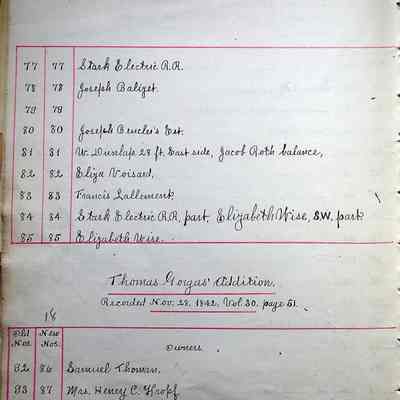 77 77 Stark Electric R.R.
78 78 Joseph Balizet.
79 79
80 80 Joseph Beucler's Est.
81 81 W. Dunlap 28 ft. East side, Jacob Roth balance,
82 82 Eliza Voisard,
83 83 Francis Lallement,
84 84 Stark Electric R.R. part, Elizabeth Wise, S.W. part
85 85 Elizabeth Wise.
Thomas Gorgas' Addition.
Recorded Nov. 28, 1842, Vol 30, page 51.
18
Old Nos. New Nos. Owners
82 86 Samuel Thoman.
83 87 Mrs. Henry C. Knopf